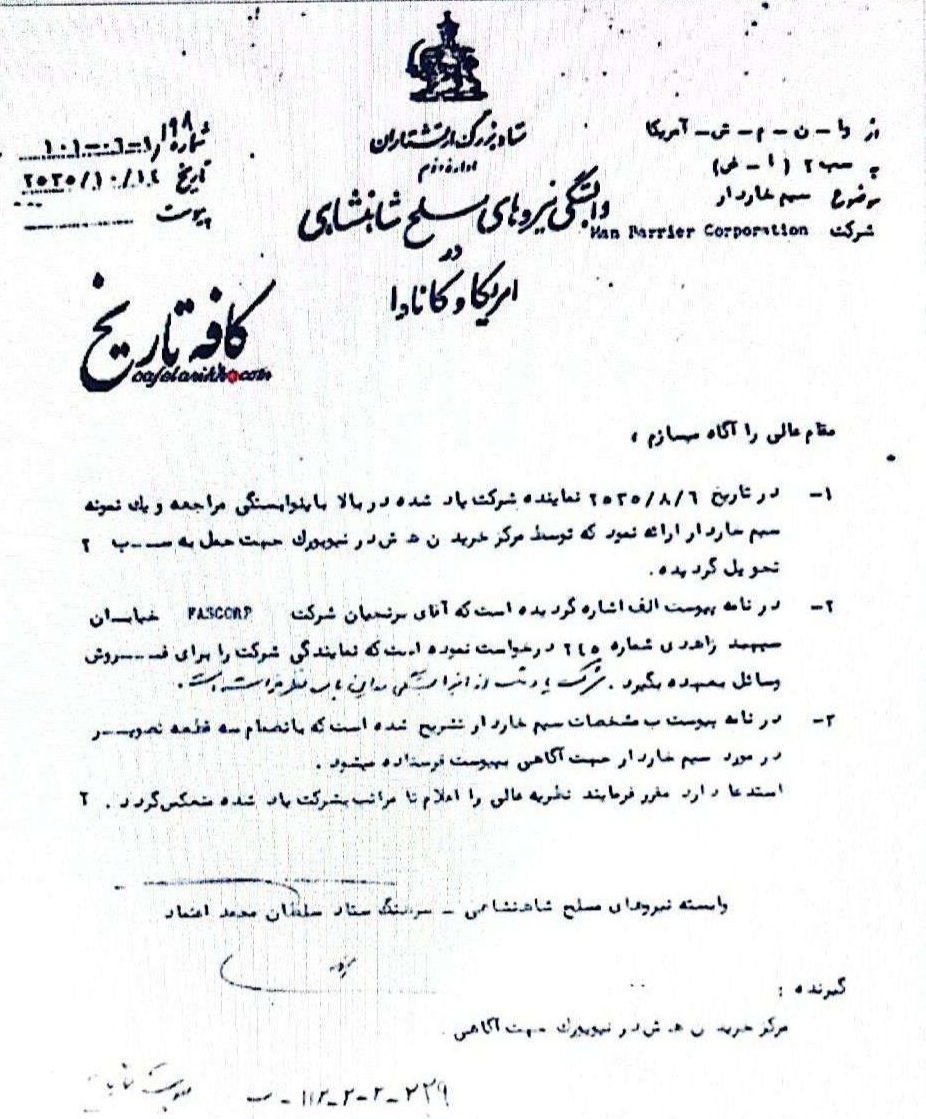 ستاد بزرگ ارتشتاران
اداره دوم
وابستگی نیروهای مسلح شاهنشاهی
در
امریکا و کانادا
از وا - ن - م - ش - آمریکا
به سب ۲ (ا - ض)
موضوع سیم خاردار
شرکت Man Barrier Corporation
شماره
تاریخ ۲۵۳۵/۱۰/۱۴
پیوست
کافه تاریخ
cafetarikh.com
مقام عالی را آگاه میسازم ،
۱- در تاریخ ۲۵۳۵/۸/۶ نماینده شرکت یاد شده در بالا باینوابستگی مراجعه و یک نمونه
سیم خاردار ارائه نمود که توسط مرکز خرید ن ه ش در نیویورک جهت حمل به سـب ۲
تحویل گردیده.
۲- در نامه پیوست الف اشاره گردیده است که آقای شرکت PASCORP خیابـان
سپهبد زاهدی شماره ۲۴۵ درخواست نموده است که نمایندگی شرکت را برای فـروش
وسائل بعهده بگیرد. شرکت یاد شده از این وابستگی در این باره نظر خواسته است.
۳- در نامه پیوست ب مشخصات سیم خاردار تشریح شده است که بانضمام سه قطعه تصویـر
در مورد سیم خاردار جهت آگاهی بپیوست فرستاده میشود.
استدعا دارد مقرر فرمایند نظریه عالی را اعلام تا مراتب بشرکت یاد شده منعکس گردد. ۲
وابسته نیروهای مسلح شاهنشاهی - سرهنگ ستاد سلطان محمد اعتماد
گیرنده :
مرکز خرید ن ه ش در نیویورک جهت آگاهی